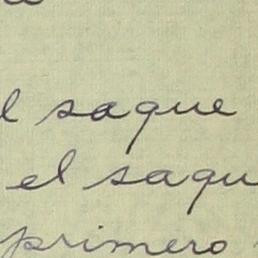 l saque
el saqu
primero